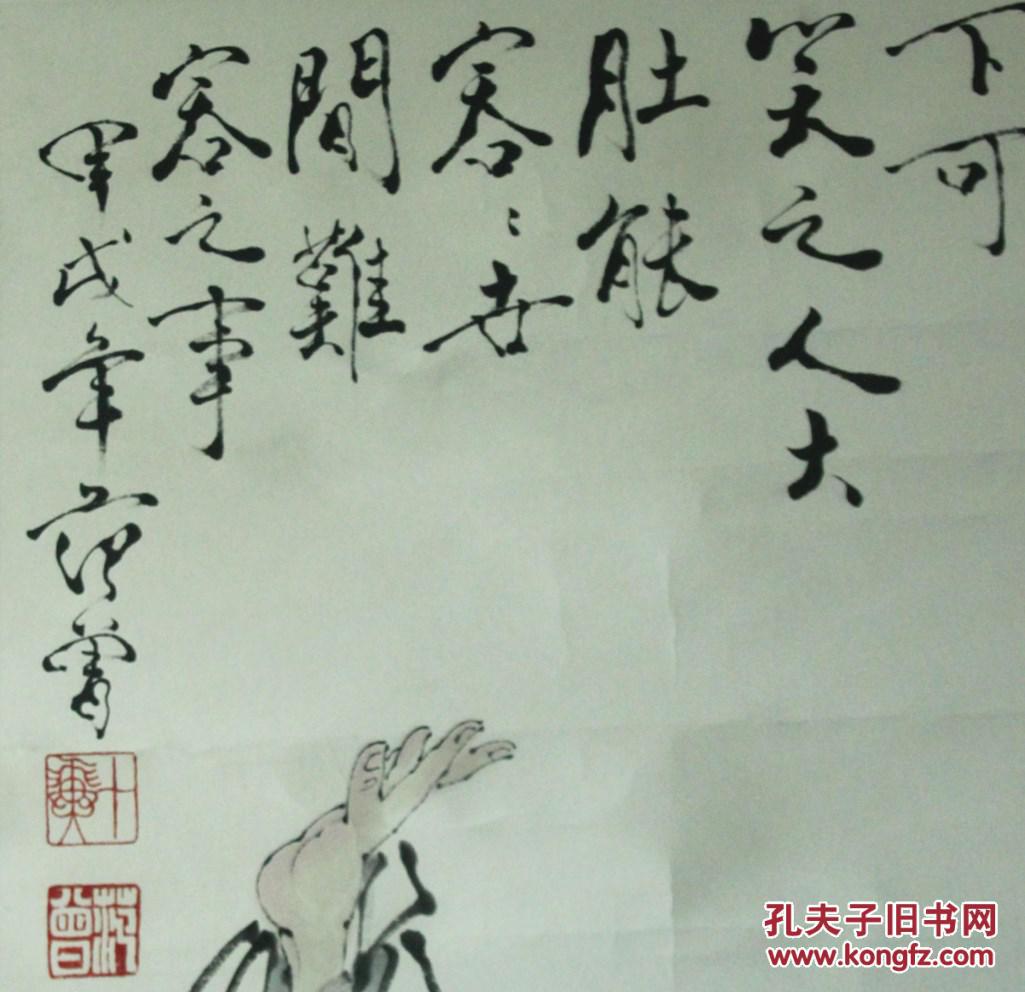 下可
笑之人大
肚能
容〻世
間難
容之事
甲戌年 范曾
十翼
范曾
孔夫子旧书网
www.kongfz.com